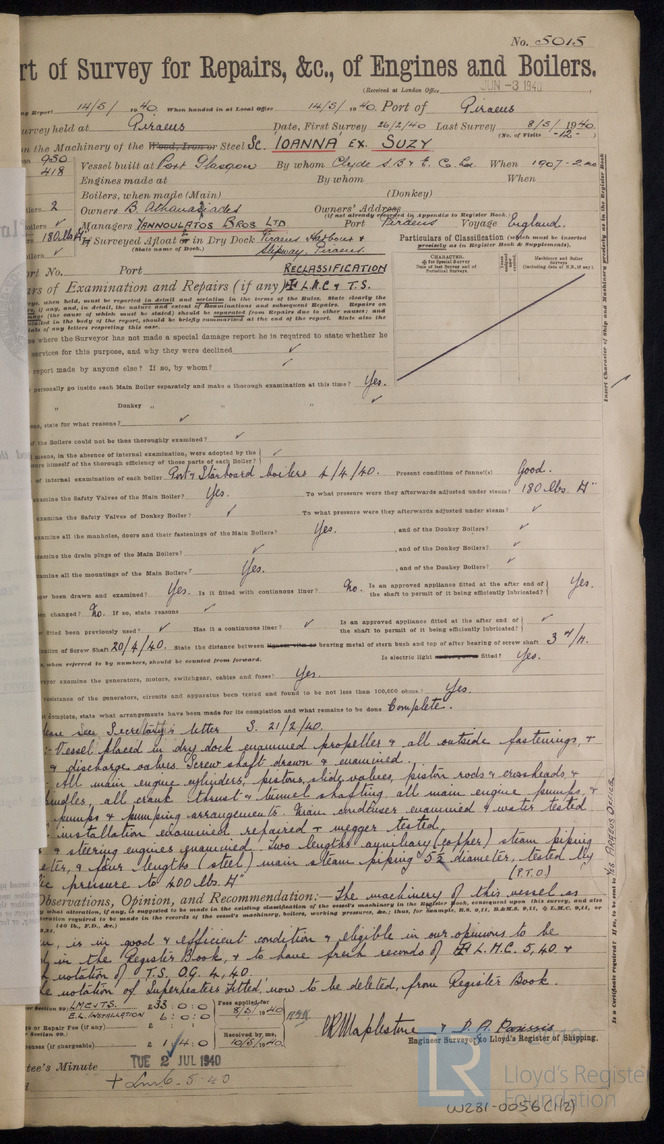 No. 5015
rt of Survey for Repairs, &c., of Engines and Boilers.
(Received at London Office JUN -3 1940
ng Report 14/5/ 1940. When handed in at Local Office 14/5/ 1940. Port of Piraeus
urvey held at Piraeus Date, First Survey 26/2/40 Last Survey 8/5/1940.
(No. of Visits -12-)
n the Machinery of the Wood, Iron or Steel Sc. IOANNA EX. SUZY
950
418 Vessel built at Port Glasgow By whom Clyde S.B & E. Co. Ld When 1907-2 mo
Engines made at By whom When
Boilers, when made (Main) (Donkey)
ilers 2 Owners B. Athanassiades Owners' Address
(if not already recorded in Appendix to Register Book.)
Managers YANNOULATOS BROS LTD Port Piraeus Voyage England.
180 lbs Surveyed Afloat or in Dry Dock Piraeus Harbour &
(State name of Dock.) Slipway, Piraeus
Particulars of Classification (which must be inserted
precisely as in Register Book & Supplements).
CHARACTER.
for Special Survey
Date of last Survey and of
Periodical Surveys.
Machinery and Boiler
Surveys
(including date of N.B., if any)
Insert Character of Ship and Machinery precisely as in the Register Book
ort No. Port RECLASSIFICATION
rs of Examination and Repairs (if any) ✠ L.M.C & T.S.
s where the Surveyor has not made a special damage report he is required to state whether he
services for this purpose, and why they were declined ✓
report made by anyone else? If so, by whom? ✓
personally go inside each Main Boiler separately and make a thorough examination at this time? Yes.
" Donkey " " ✓
one, state for what reasons? ✓
f the Boilers could not be thus thoroughly examined? ✓
means, in the absence of internal examination, were adopted by the
ure himself of the thorough efficiency of those parts of each Boiler? ✓
of internal examination of each boiler Port & Starboard boilers 4/4/40. Present condition of funnel(s) Good.
examine the Safety Valves of the Main Boiler? Yes. To what pressure were they afterwards adjusted under steam? 180 lbs
examine the Safety Valves of Donkey Boiler? ✓ To what pressure were they afterwards adjusted under steam? ✓
examine all the manholes, doors and their fastenings of the Main Boilers? Yes. , and of the Donkey Boilers? ✓
examine the drain plugs of the Main Boilers? ✓ , and of the Donkey Boilers? ✓
examine all the mountings of the Main Boilers? Yes. , and of the Donkey Boilers? ✓
w been drawn and examined? Yes. Is it fitted with continuous liner? No. Is an approved appliance fitted at the after end of
the shaft to permit of it being efficiently lubricated? Yes.
en changed? No. If so, state reasons ✓
fitted been previously used? ✓ Has it a continuous liner? ✓ Is an approved appliance fitted at the after end of
the shaft to permit of it being efficiently lubricated? ✓
ation of Screw Shaft 20/4/40. State the distance between lignum vitæ or bearing metal of stern bush and top of after bearing of screw shaft 3 M/M.
s, when referred to by numbers, should be counted from forward. Is electric light fitted? Yes.
veyor examine the generators, motors, switchgear, cables and fuses? Yes.
resistance of the generators, circuits and apparatus been tested and found to be not less than 100,000 ohms? Yes.
t complete, state what arrangements have been made for its completion and what remains to be done Complete.
ease see Secretary's letter 3. 21/2/40.
Vessel placed in dry dock examined propeller & all outside fastenings, &
& discharge valves. Screw shaft drawn & examined.
All main engine cylinders, pistons, slide valves, piston rods & crossheads &
indles, all crank thrust & tunnel shafting all main engine pumps, &
pumps & pumping arrangements. Main condenser examined & water tested
installation examined, repaired & megger tested.
s & steering engines examined. Two lengths auxiliary (copper) steam piping
eter, & four lengths (steel) main steam piping 5½ diameter, tested by
ic pressure to 400 lbs (P.T.O.)
Observations, Opinion, and Recommendation:— The machinery of this vessel as
n, is in good & efficient condition & eligible in our opinions to be
d in the Register Book, & to have fresh records of ✠ L.M.C. 5,40 &
notation of T.S. O.G. 4,40.
he notation of Superheaters fitted, now to be deleted, from Register Book.
er Section 29.) LMC & TS. £ 33 : 0 : 0
EL. INSTALLATION 6 : 0 : 0
ge or Repair Fee (if any) £ : :
enses (if chargeable) £ 1 : 4 : 0
Fees applied for
8/5/1940
Received by me,
10/5/1940.
R Maplestone &
Engineer Surveyor to Lloyd's Register of Shipping.
ttee's Minute TUE 2 JUL 1940
+ Lmc 5.40
Is a Certificate required? If so, to be sent to Yes PIRAEUS OFFICE
LR
Lloyd's Register
Foundation
W281-0056(1/2)